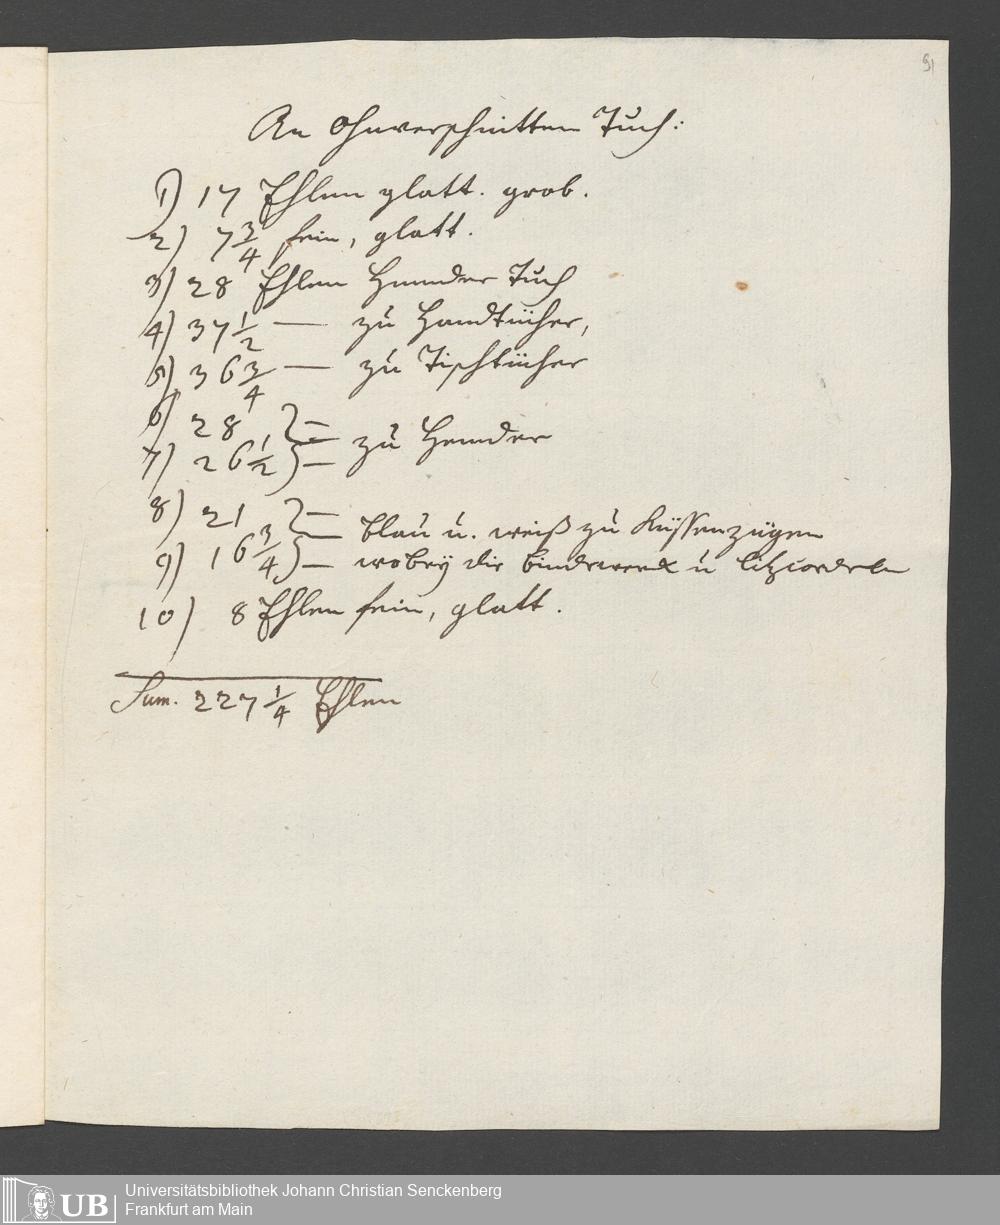 91
An Ohnverschnitten Tuch:
1) 17 Ehlen glatt. grob.
2) 7 3/4 fein, glatt.
3) 28 Ehlen Hemder Tuch
4) 37 1/2 — zu Handtücher,
5) 36 3/4 — zu Tischtücher
6) 28 } —
7) 26 1/2 } — zu Hemder
8) 21 } —
9) 16 3/4 } — blau u. weiß zu Küssenzügen
— wobey die bindewerck u
10) 8 Ehlen fein, glatt.
Sum. 227 1/4 Ehlen
UB
Universitätsbibliothek Johann Christian Senckenberg
Frankfurt am Main